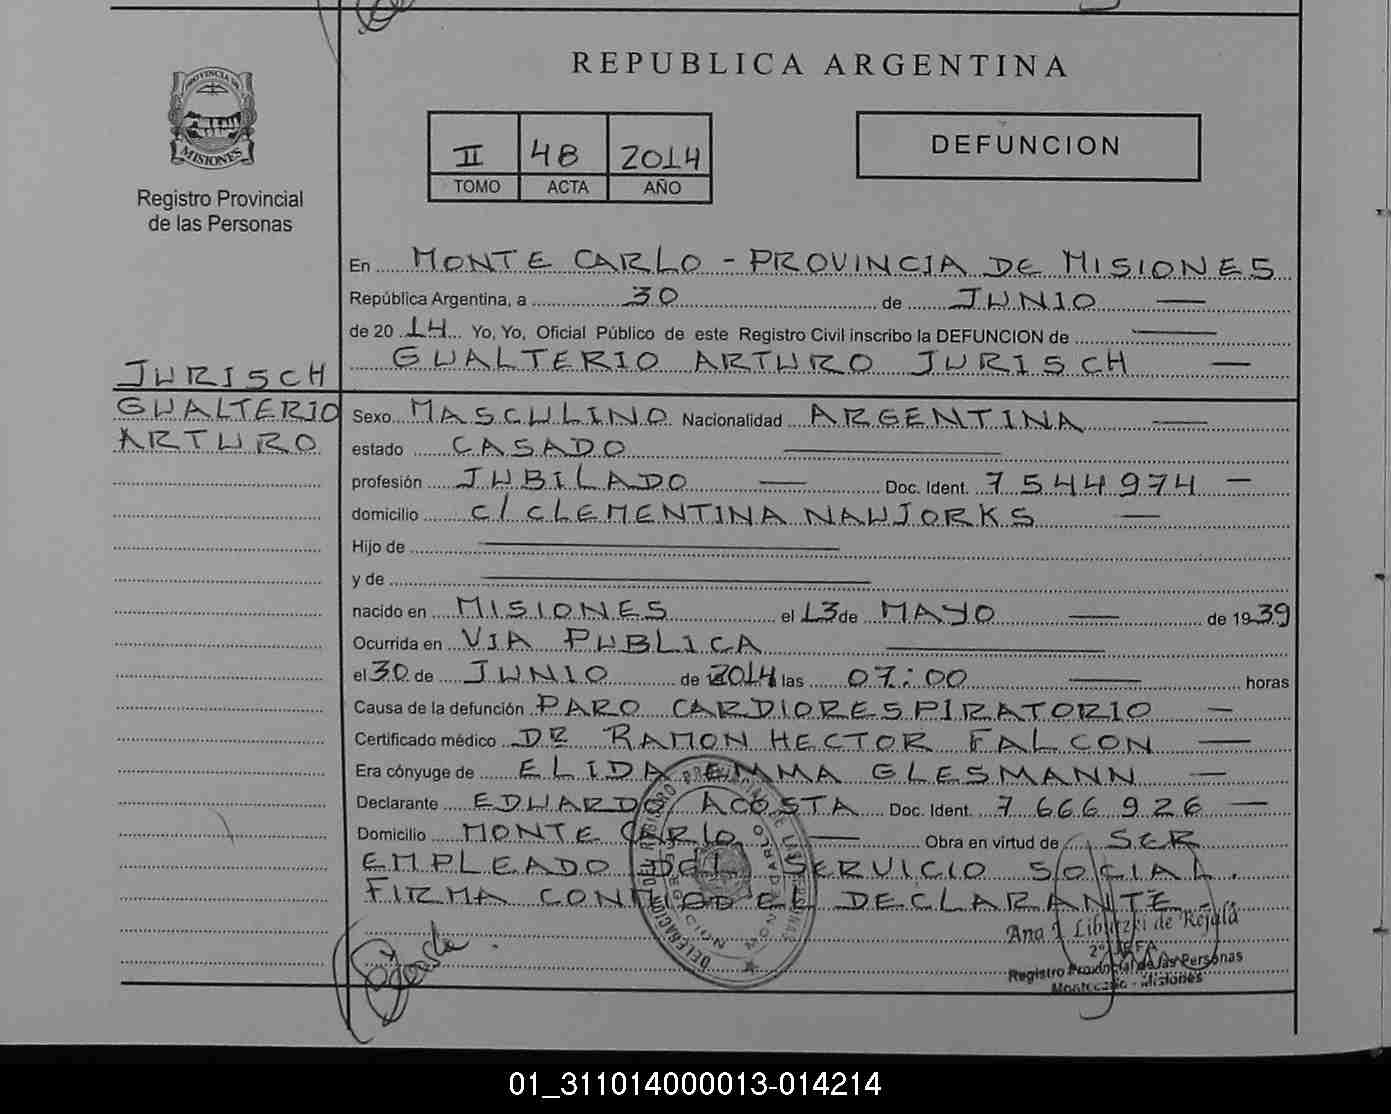 REPUBLICA ARGENTINA
PROVINCIA DE
MISIONES
Registro Provincial
de las Personas
II 48 2014
TOMO ACTA AÑO
DEFUNCION
En MONTE CARLO - PROVINCIA DE MISIONES
República Argentina, a 30 de JUNIO
de 20 14 Yo, Yo, Oficial Público de este Registro Civil inscribo la DEFUNCION de
GUALTERIO ARTURO JURISCH
JURISCH
GUALTERIO
ARTURO
Sexo MASCULINO Nacionalidad ARGENTINA
estado CASADO
profesión JUBILADO Doc. Ident. 7544974
domicilio C/ CLEMENTINA NAUJORKS
Hijo de
y de
nacido en MISIONES el 13 de MAYO de 1939
Ocurrida en VIA PUBLICA
el 30 de JUNIO de 2014 las 07:00 horas
Causa de la defunción PARO CARDIORESPIRATORIO
Certificado médico DR RAMON HECTOR FALCON
Era cónyuge de ELIDA EMMA GLESMANN
Declarante EDUARDO ACOSTA Doc. Ident. 7666926
Domicilio MONTE CARLO Obra en virtud de SER
EMPLEADO DEL SERVICIO SOCIAL.
FIRMA CONMIGO EL DECLARANTE.
DELEGACION DEL REGISTRO PROVINCIAL DE LAS PERSONAS
Ana I. de Rejala
2º JEFA
Registro Provincial de las Personas
Montecarlo - Misiones
01_311014000013-014214